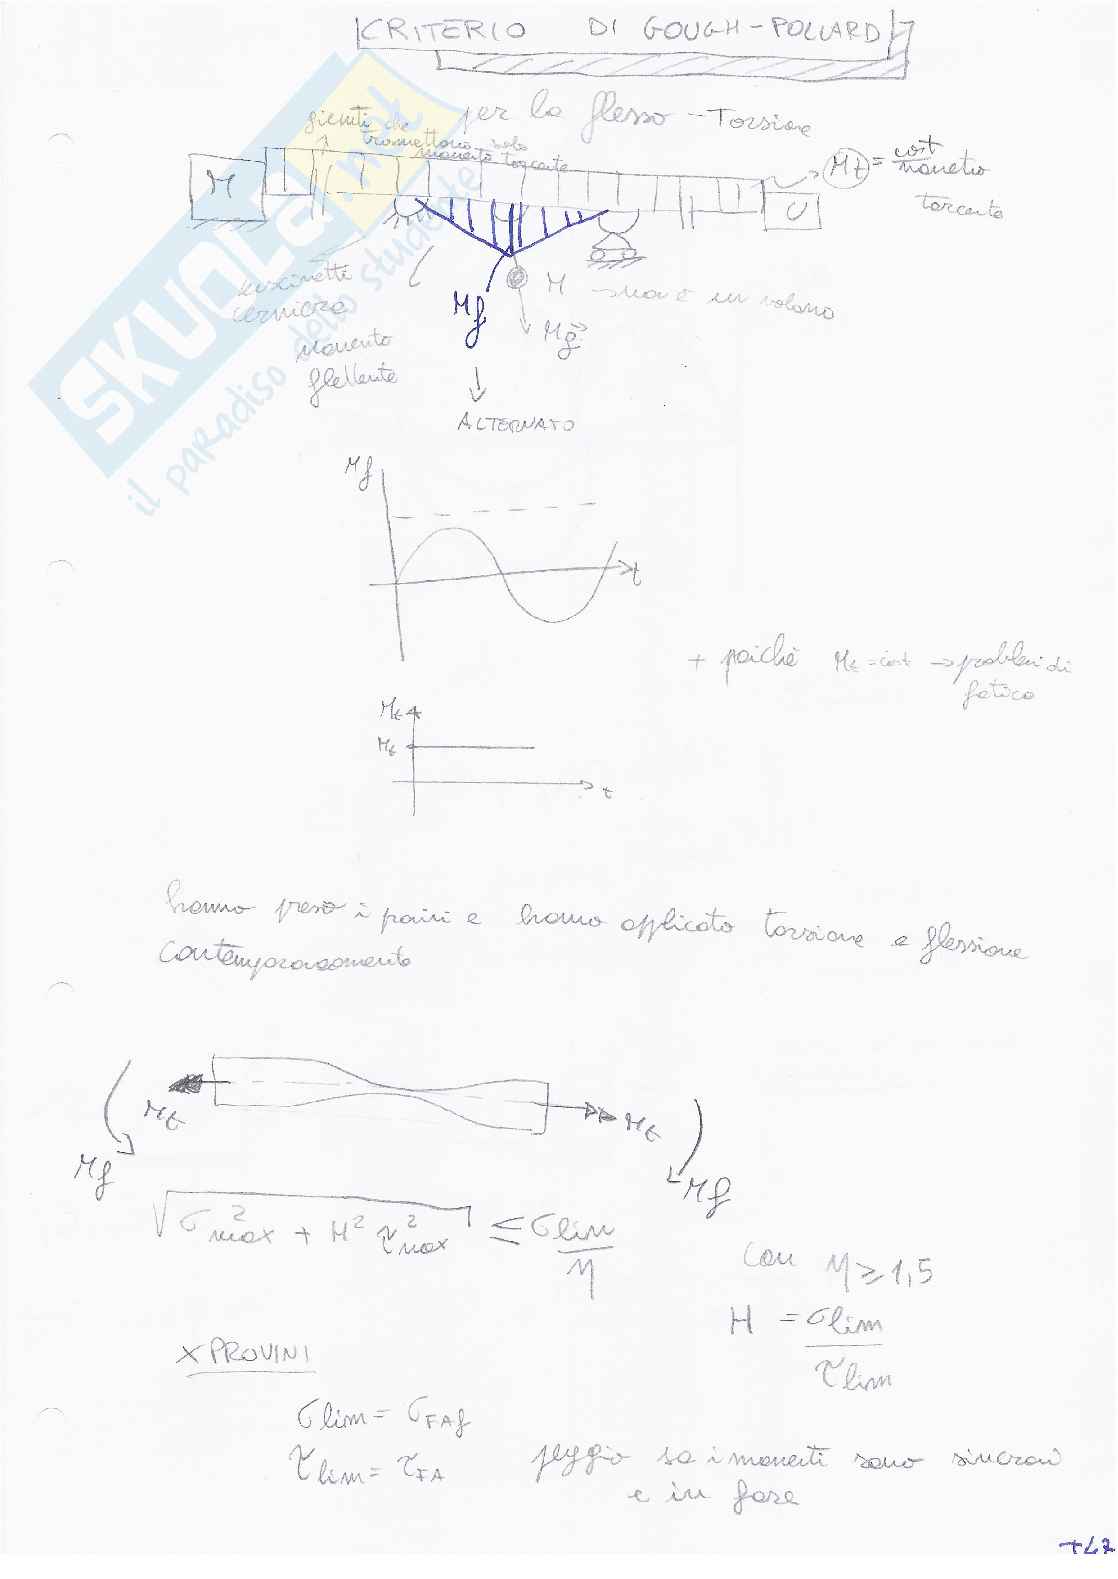 CRITERIO DI GOUGH-POLLARD
per la flesso-Torsione
giunti che
trasmettono solo
momento torcente
M
Mt = cost
momento
torcente
U
cuscinetti
cerniera
momento
flettente
Mf
M → non è un volano
Mg
ALTERNATO
Mf
t
+ poichè Mt = cost → problemi di
fatica
Mt
Mt
t
hanno preso i provini e hanno applicato torsione e flessione
contemporaneamente
Mt
Mt
Mf
Mf
√σ²max + H² τ²max ≤ σlim/η
con η ≥ 1,5
H = σlim/τlim
X PROVINI
σlim = σFAf
τlim = τFA
peggio se i momenti sono sincroni
e in fase
SKUOLA.net
il paradiso dello studente